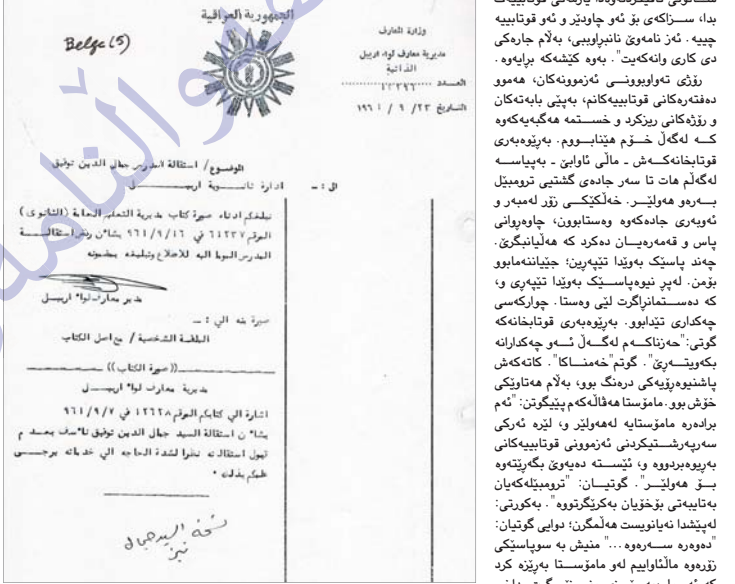 الجمهورية العراقية
وزارة المعارف
مديرية معارف لواء اربيل
الذاتية
العـــدد
التاريخ ٢٣/ ٩ / ١٩٦١
Belge (5)
الموضوع/ استقالة المدرس جمال الدين توفيق
الى :ـ ادارة ثانـــوية اربيـــل
نبلغكم ادناه صورة كتاب مديرية التعليم العامة (الثانوى)
المرقم ٦١٢٣٧ في ٩٦١/٩/١٦ بشأن رفض استقالـــة
المدرس الموما اليه للاطلاع وتبليغه بمضمونه
مدير معارف لواء اربيـل
صورة منه الى :ـ
الملفة الشخصية / مع اصل الكتاب
((صورة الكتاب))
مديرية معارف لواء اربيـــل
اشارة الى كتابكم المرقم ١٢٦٢٨ في ٩٦١/٩/٧
بشأن استقالة السيد جمال الدين توفيق نأسف بعـــدم
قبول استقالته نظرا لشدة الحاجه الى خدماته يرجـــى
علمكم بذلك ٠
نسخة السيد جمال
بدا، ســزاكەی بۆ ئەو چاودێر و ئەو قوتابییە
چییە. ئەز نامەوێ نانبڕاویبی، بەڵام جارەکی
دی کاری وانەکەیت". بەوە کێشەکە بڕایەوە.
رۆژی تەواوبوونــی ئەزموونەکان، هەموو
دەفتەرەکانی قوتابییەکانم، بەپێی بابەتەکان
و رۆژەکانی ریزکرد و خســتمە هەگبەیەکەوە
کــە لەگەڵ خــۆم هێنابــووم. بەڕێوەبەری
قوتابخانەکــەش ـ ماڵی ئاوابێ ـ بەپیاســە
لەگەڵم هات تا سەر جادەی گشتیی ترومبێل
بــەرەو هەولێــر. خەڵکێکــی زۆر لەمبەر و
ئەوبەری جادەکەوە وەستابوون، چاوەڕوانی
پاس و قەمەرەیــان دەکرد کە هەڵیانبگرێ.
چەند پاسێک بەوێدا تێپەڕین؛ جێیانەمابوو
بۆمن. لەپڕ نیوەپاســێک بەوێدا تێپەڕی و،
کە دەســتمانڕاگرت لێی وەستا. چوارکەسی
چەکداری تێدابوو. بەڕێوەبەری قوتابخانەکە
گوتی:"حەزناکــەم لەگــەڵ ئــەو چەکدارانە
بکەویتــەڕێ". گوتم"خەمنــاکا". کاتەکەش
پاشنیوەڕۆیەکی درەنگ بوو، بەڵام هەتاوێکی
خۆش بوو.مامۆستا هەڤاڵەکەم پێیگوتن: "ئەم
برادەرە مامۆستایە لەهەولێر و، لێرە ئەرکی
سەرپەرشــتیکردنی ئەزموونی قوتابییەکانی
بەڕێوەبردووە و، ئێســتە دەیەوێ بگەڕێتەوە
بــۆ هەولێــر". گوتیــان: "ترومبێلەکەیان
بەتایبەتی بۆخۆیان بەکرێگرتووە". بەکورتی:
لەپێشدا نەیانویست هەڵمگرن؛ دوایی گوتیان:
"دەوەرە ســەرەوە..." منیش بە سوپاسێکی
زۆرەوە ماڵئاواییم لەو مامۆســتا بەڕێزە کرد